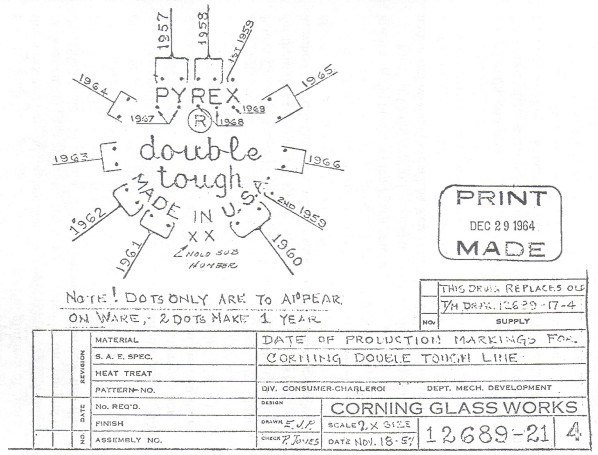 1957
1958
1ST 1959
1964
1965
PYREX
1967
1968
1969
R
double
tough
1963
1966
MADE IN U.S.A.
2ND 1959
X X
MOLD SUB
NUMBER
1962
1961
1960
NOTE! DOTS ONLY ARE TO APPEAR
ON WARE,- 2 DOTS MAKE 1 YEAR
PRINT
DEC 29 1964
MADE
THIS DRWG REPLACES OLD
T/H DRWG. 12689-17-4
NO. SUPPLY
REVISION
MATERIAL
S. A. E. SPEC.
HEAT TREAT
PATTERN NO.
DATE
NO.
No. REQ'D.
FINISH
ASSEMBLY NO.
DATE OF PRODUCTION MARKINGS FOR
CORNING DOUBLE TOUGH LINE
DIV. CONSUMER-CHARLEROI DEPT. MECH. DEVELOPMENT
DESIGN
CORNING GLASS WORKS
DRAWN E.J.P. SCALE 2 X SIZE
CHECK P. JONES DATE NOV. 18-57
12689-21 4